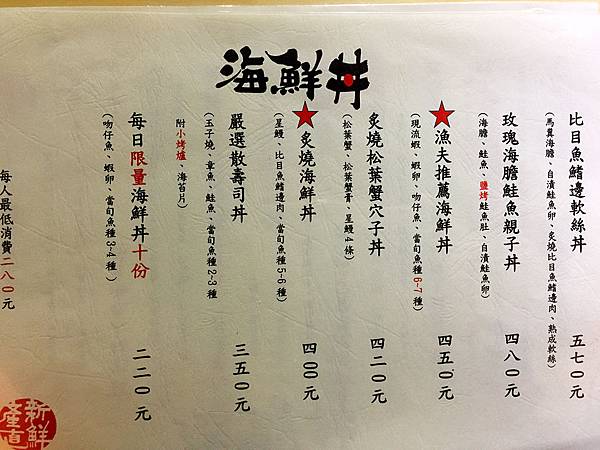 海鮮丼
比目魚鰭邊軟絲丼 五七0元
(馬糞海膽、自漬鮭魚卵、炙燒比目魚鰭邊肉、熟成軟絲)
玫瑰海膽鮭魚親子丼 四八0元
(海膽、鮭魚、鹽烤鮭魚肚、自漬鮭魚卵)
★漁夫推薦海鮮丼 四五0元
(現流蝦、蝦卵、吻仔魚、當旬魚種6-7種)
炙燒松葉蟹穴子丼 四二0元
(松葉蟹、松葉蟹膏、星鰻4條)
★炙燒海鮮丼 四00元
(星鰻、比目魚鰭邊肉、當旬魚種5-6種)
嚴選散壽司丼 三五0元
(玉子燒、章魚、鮭魚、當旬魚種2-3種)
附小烤爐、海苔片)
每日限量海鮮丼十份 二二0元
(吻仔魚、蝦卵、當旬魚種3-4種)
每人最低消費二八0元
新鮮
產直